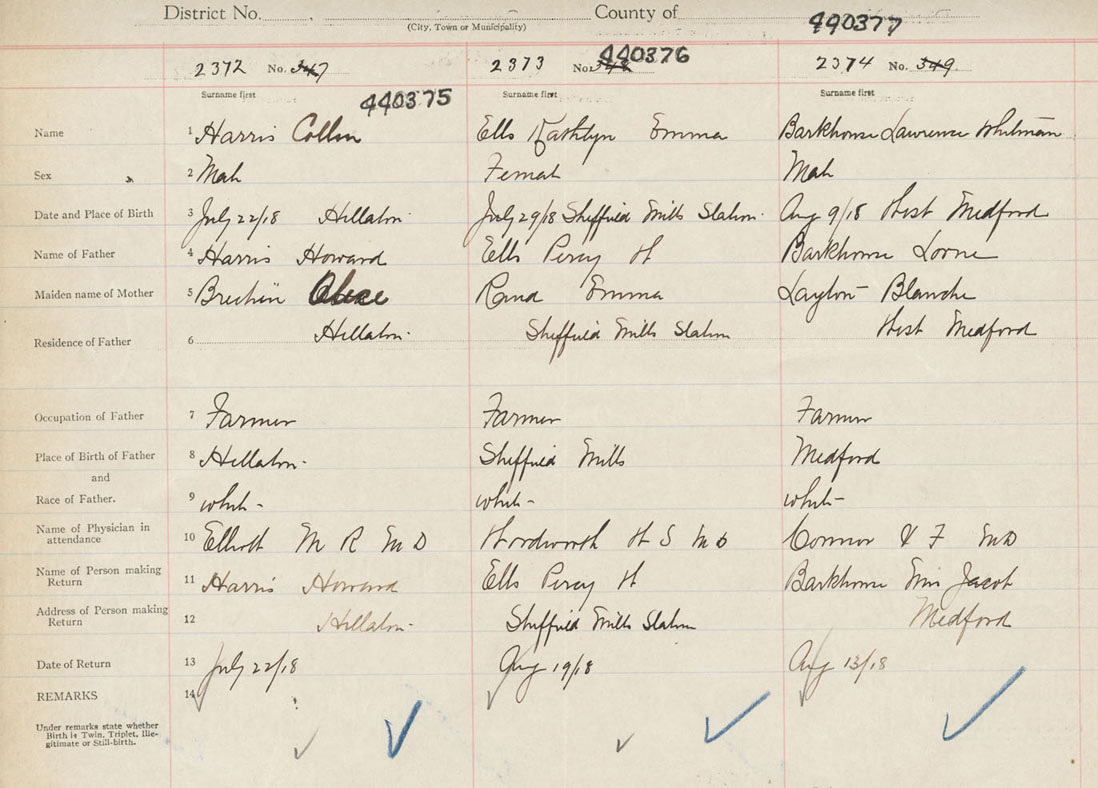 District No. County of
(City, Town or Municipality)
440377
2372 No. 347 2373 No. 348 440376 2374 No. 349
Surname first Surname first Surname first
440375
Name 1 Harris Collin Ells Kathlyn Emma Barkhouse Lawrence Whitman
Sex 2 Male Female Male
Date and Place of Birth 3 July 22/18 Hillaton July 29/18 Sheffield Mills Station Aug 9/18 West Medford
Name of Father 4 Harris Howard Ells Percy H Barkhouse Lorne
Maiden name of Mother 5 Brechin Alice Rand Emma Layton Blanche
Residence of Father 6 Hillaton Sheffield Mills Station West Medford
Occupation of Father 7 Farmer Farmer Farmer
Place of Birth of Father 8 Hillaton Sheffield Mills Medford
and
Race of Father. 9 white white white
Name of Physician in
attendance 10 Elliott M R M D Wordworth H S M D Connor F M D
Name of Person making
Return 11 Harris Howard Ells Percy H Barkhouse Mrs Jacob
Address of Person making
Return 12 Hillaton Sheffield Mills Station Medford
Date of Return 13 July 22/18 Aug 19/18 Aug 13/18
REMARKS 14
Under remarks state whether
Birth is Twin, Triplet, Ille-
gitimate or Still-birth.